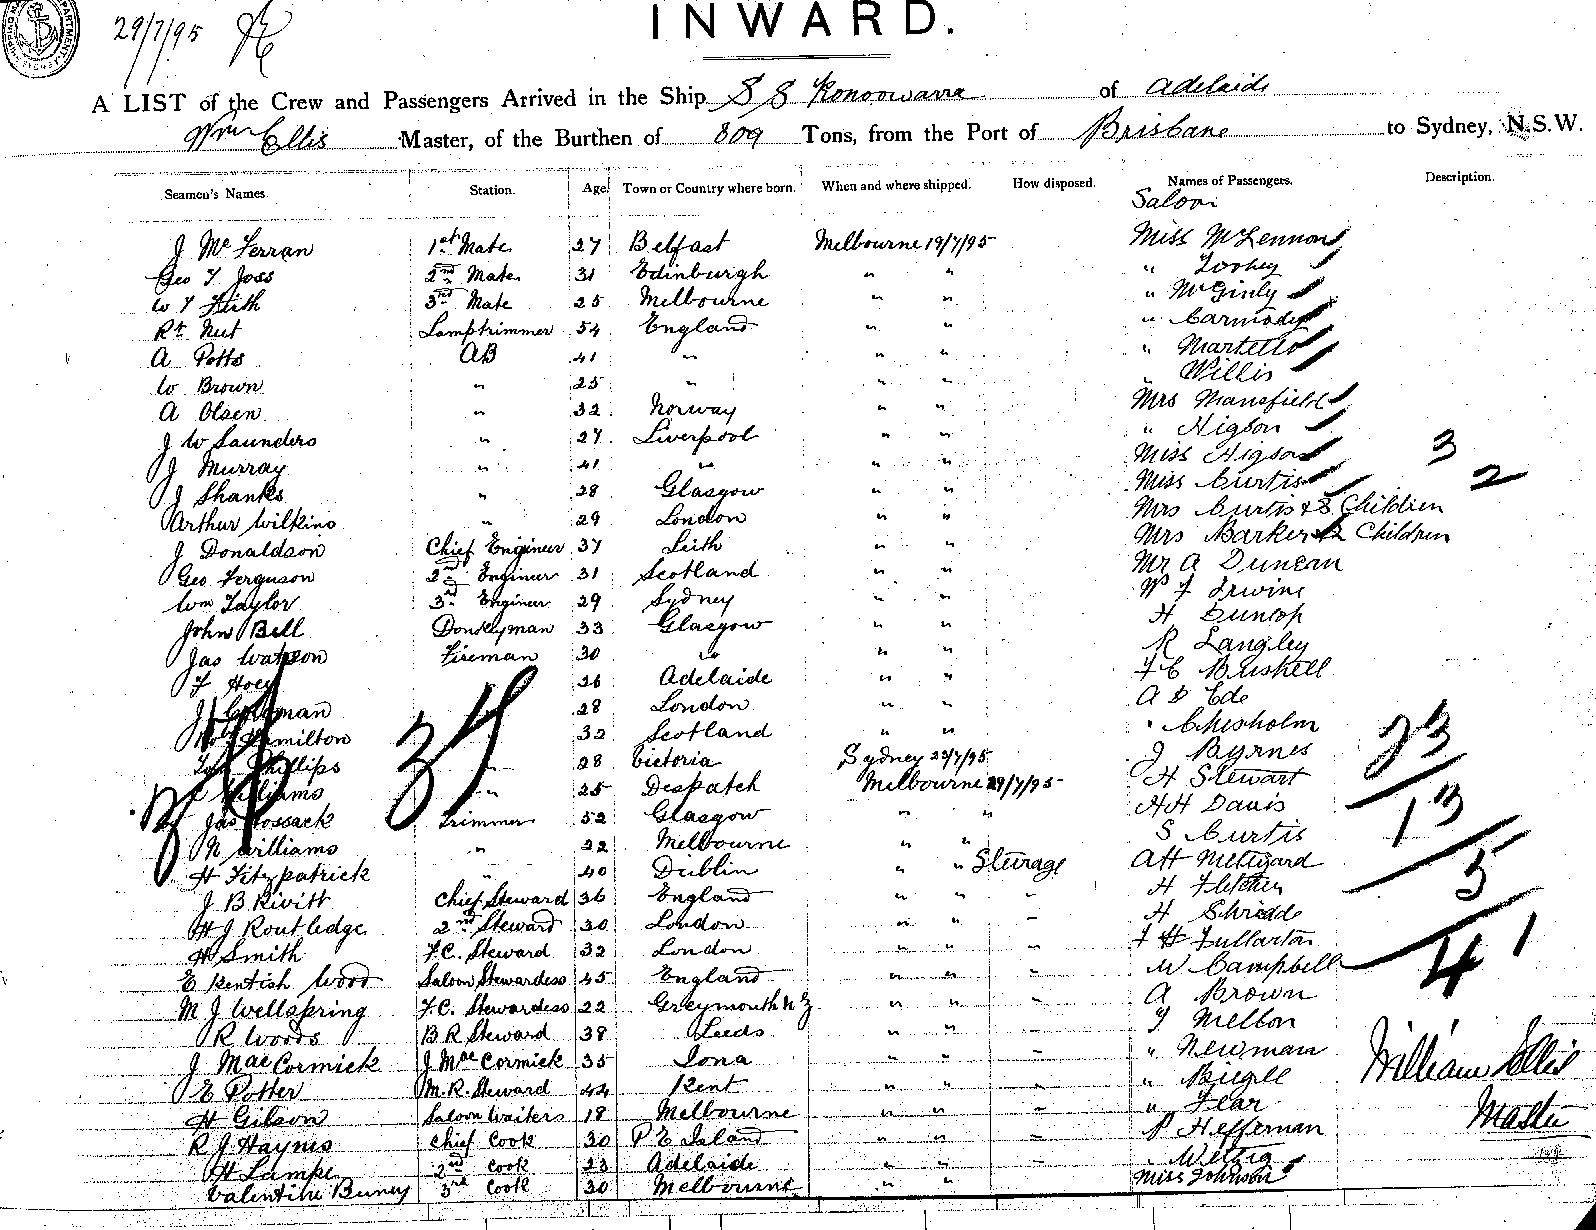 29/7/95
INWARD.
A LIST of the Crew and Passengers Arrived in the Ship S S Konoowarra of Adelaide
Wm Ellis Master, of the Burthen of 809 Tons, from the Port of Brisbane to Sydney, N.S.W.
Seamen's Names. Station. Age. Town or Country where born. When and where shipped. How disposed. Names of Passengers. Description.
Saloon
J McFerran 1st Mate 27 Belfast Melbourne 19/7/95 Miss McLennon
Geo T Joss 2nd Mate 31 Edinburgh " " " Toohey
W T Frith 3rd Mate 25 Melbourne " " " McGinly
Rt Nut Lamptrimmer 54 England " " " Carmody
A Potts AB 41 " " " " Martello
W Brown " 25 " " " " Willis
A Olsen " 32 Norway " " Mrs Mansfield
J W Saunders " 27 Liverpool " " " Higson
J Murray " 41 " " " Miss Higson 3
J Shanks " 28 Glasgow " " Miss Curtis 2
Arthur Wilkins " 29 London " " Mrs Curtis & 3 Children
J Donaldson Chief Engineer 37 Leith " " Mrs Barker & 2 Children
Geo Ferguson 2nd Engineer 31 Scotland " " Mr A Duncan
Wm Taylor 3rd Engineer 29 Sydney " " Irwine
John Bell Donkeyman 33 Glasgow " " H Dunlop
Jas Watson Fireman 30 " " " R Langley
T Hoey 26 Adelaide " " F C Buskell
J 28 London " " A D Ede
Hamilton 32 Scotland " " " Chisholm
Phillips " 28 Victoria Sydney 22/7/95 J Byrnes 23
Williams " 25 Despatch Melbourne 19/7/95 H Stewart
Jas Cossack Trimmer 52 Glasgow " " H H Davis 13
N Williams " 22 Melbourne " " S Curtis
H Fitzpatrick " 40 Dublin " " Steerage A H Mettyard 5
J B Rivitt Chief Steward 36 England " " H Fletcher
H J Routledge 2nd Steward 30 London " " " H
H Smith F.C. Steward 32 London " " " F H Fullarton
E Kentish Wood Saloon Stewardess 45 England " " " W Campbell 41
M J Wellspring F.C. Stewardess 22 Greymouth NZ " " " A Brown
R Woods B R Steward 38 Leeds " " " T Melbon
J MacCormick J MacCormick 35 Iona " " " " Newman William Ellis
E Potter M.R. Steward 44 Kent " " "
H Gibson Saloon Waiters 18 Melbourne " " " " Fear Master
R J Hayns Chief Cook 30 P E Island " " " P Heffernan
H Lampe 2nd Cook 23 Adelaide " " "
Valentine 3rd Cook 30 Melbourne " " Miss Johnson